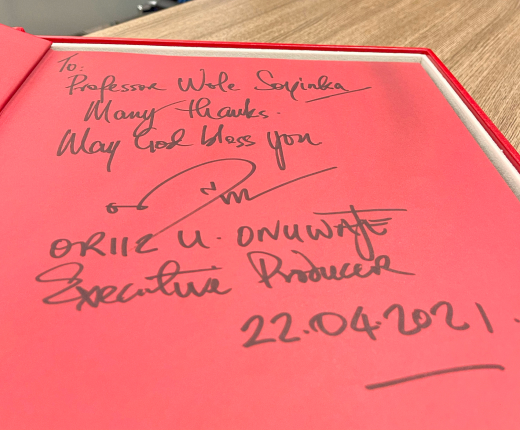 To:
Professor Wole Soyinka
Many thanks.
May God bless you
ORIIZ U. ONUWAJE
Executive Producer
22.04.2021.